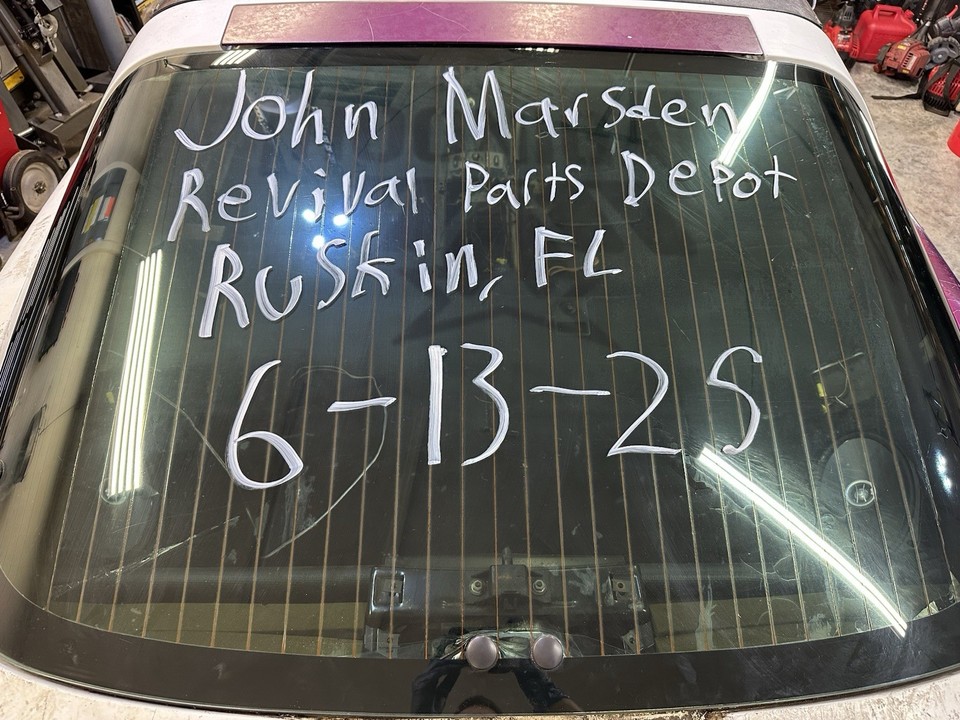 John Marsden
Revival Parts Depot
Ruskin, FL
6-13-25